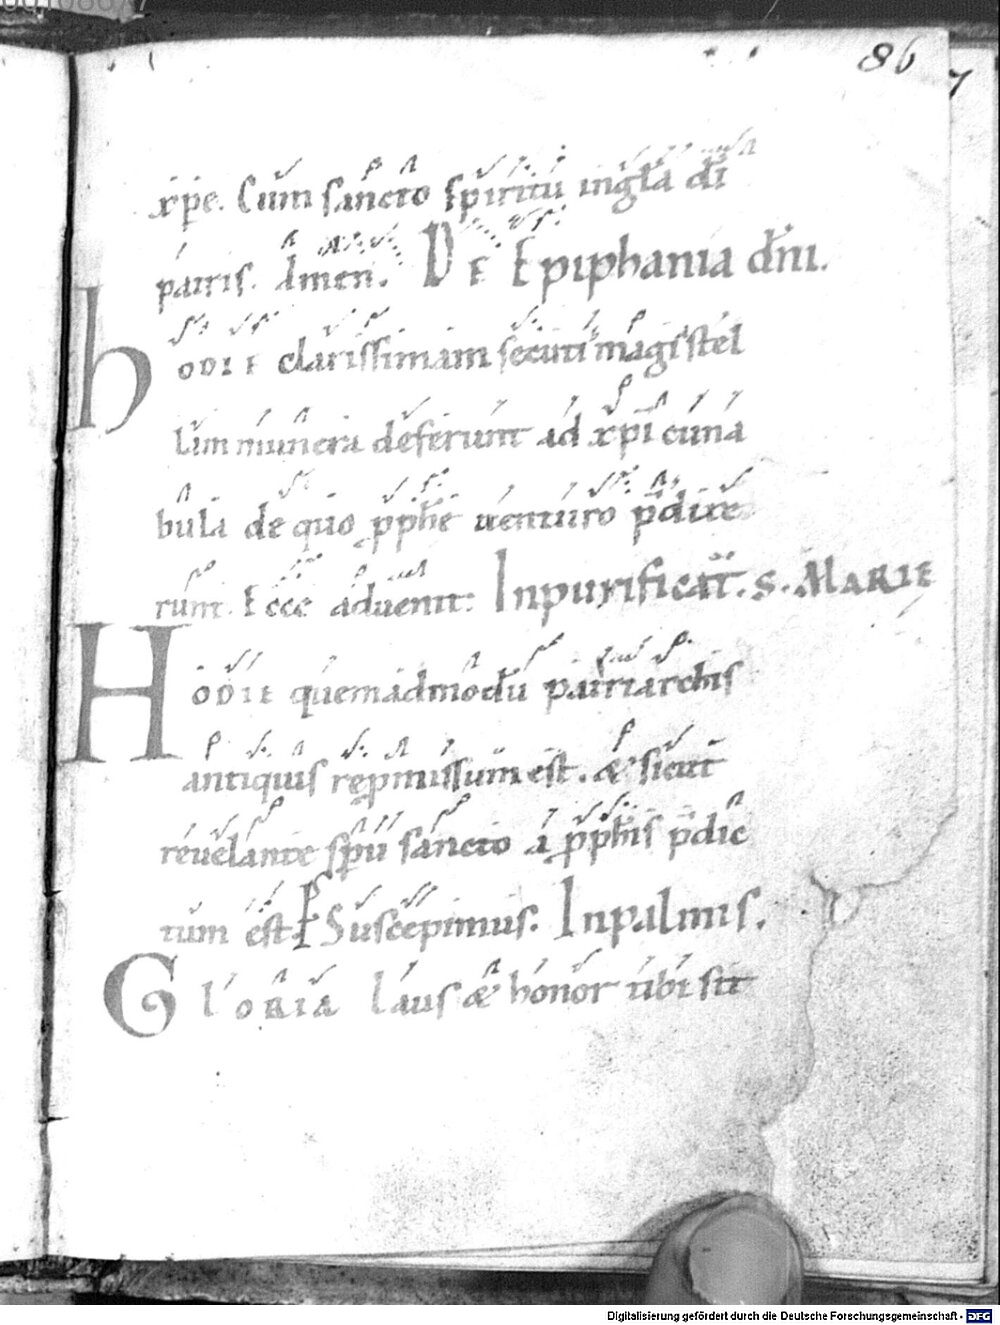 86
7
xp̄e. Cum sancto spiritu in gl̄a dī
patris. Amen. DE Epiphania dn̄i.
hODIE clarissimam secuti magi stel
lam munera deferunt ad xp̄i cuna
bula de quo pp̄he uenturo p̄dixe
runt. Ecce aduenit. In purificat̄. S. MARIE
HODIE quemadmodū patriarchis
antiquis rep̄missum est. & sicut
reuelante sp̄u sancto a pp̄his p̄dic
tum est Suscepimus. In palmis.
GLORIA laus & honor tibi sit
Digitalisierung gefördert durch die Deutsche Forschungsgemeinschaft - DFG